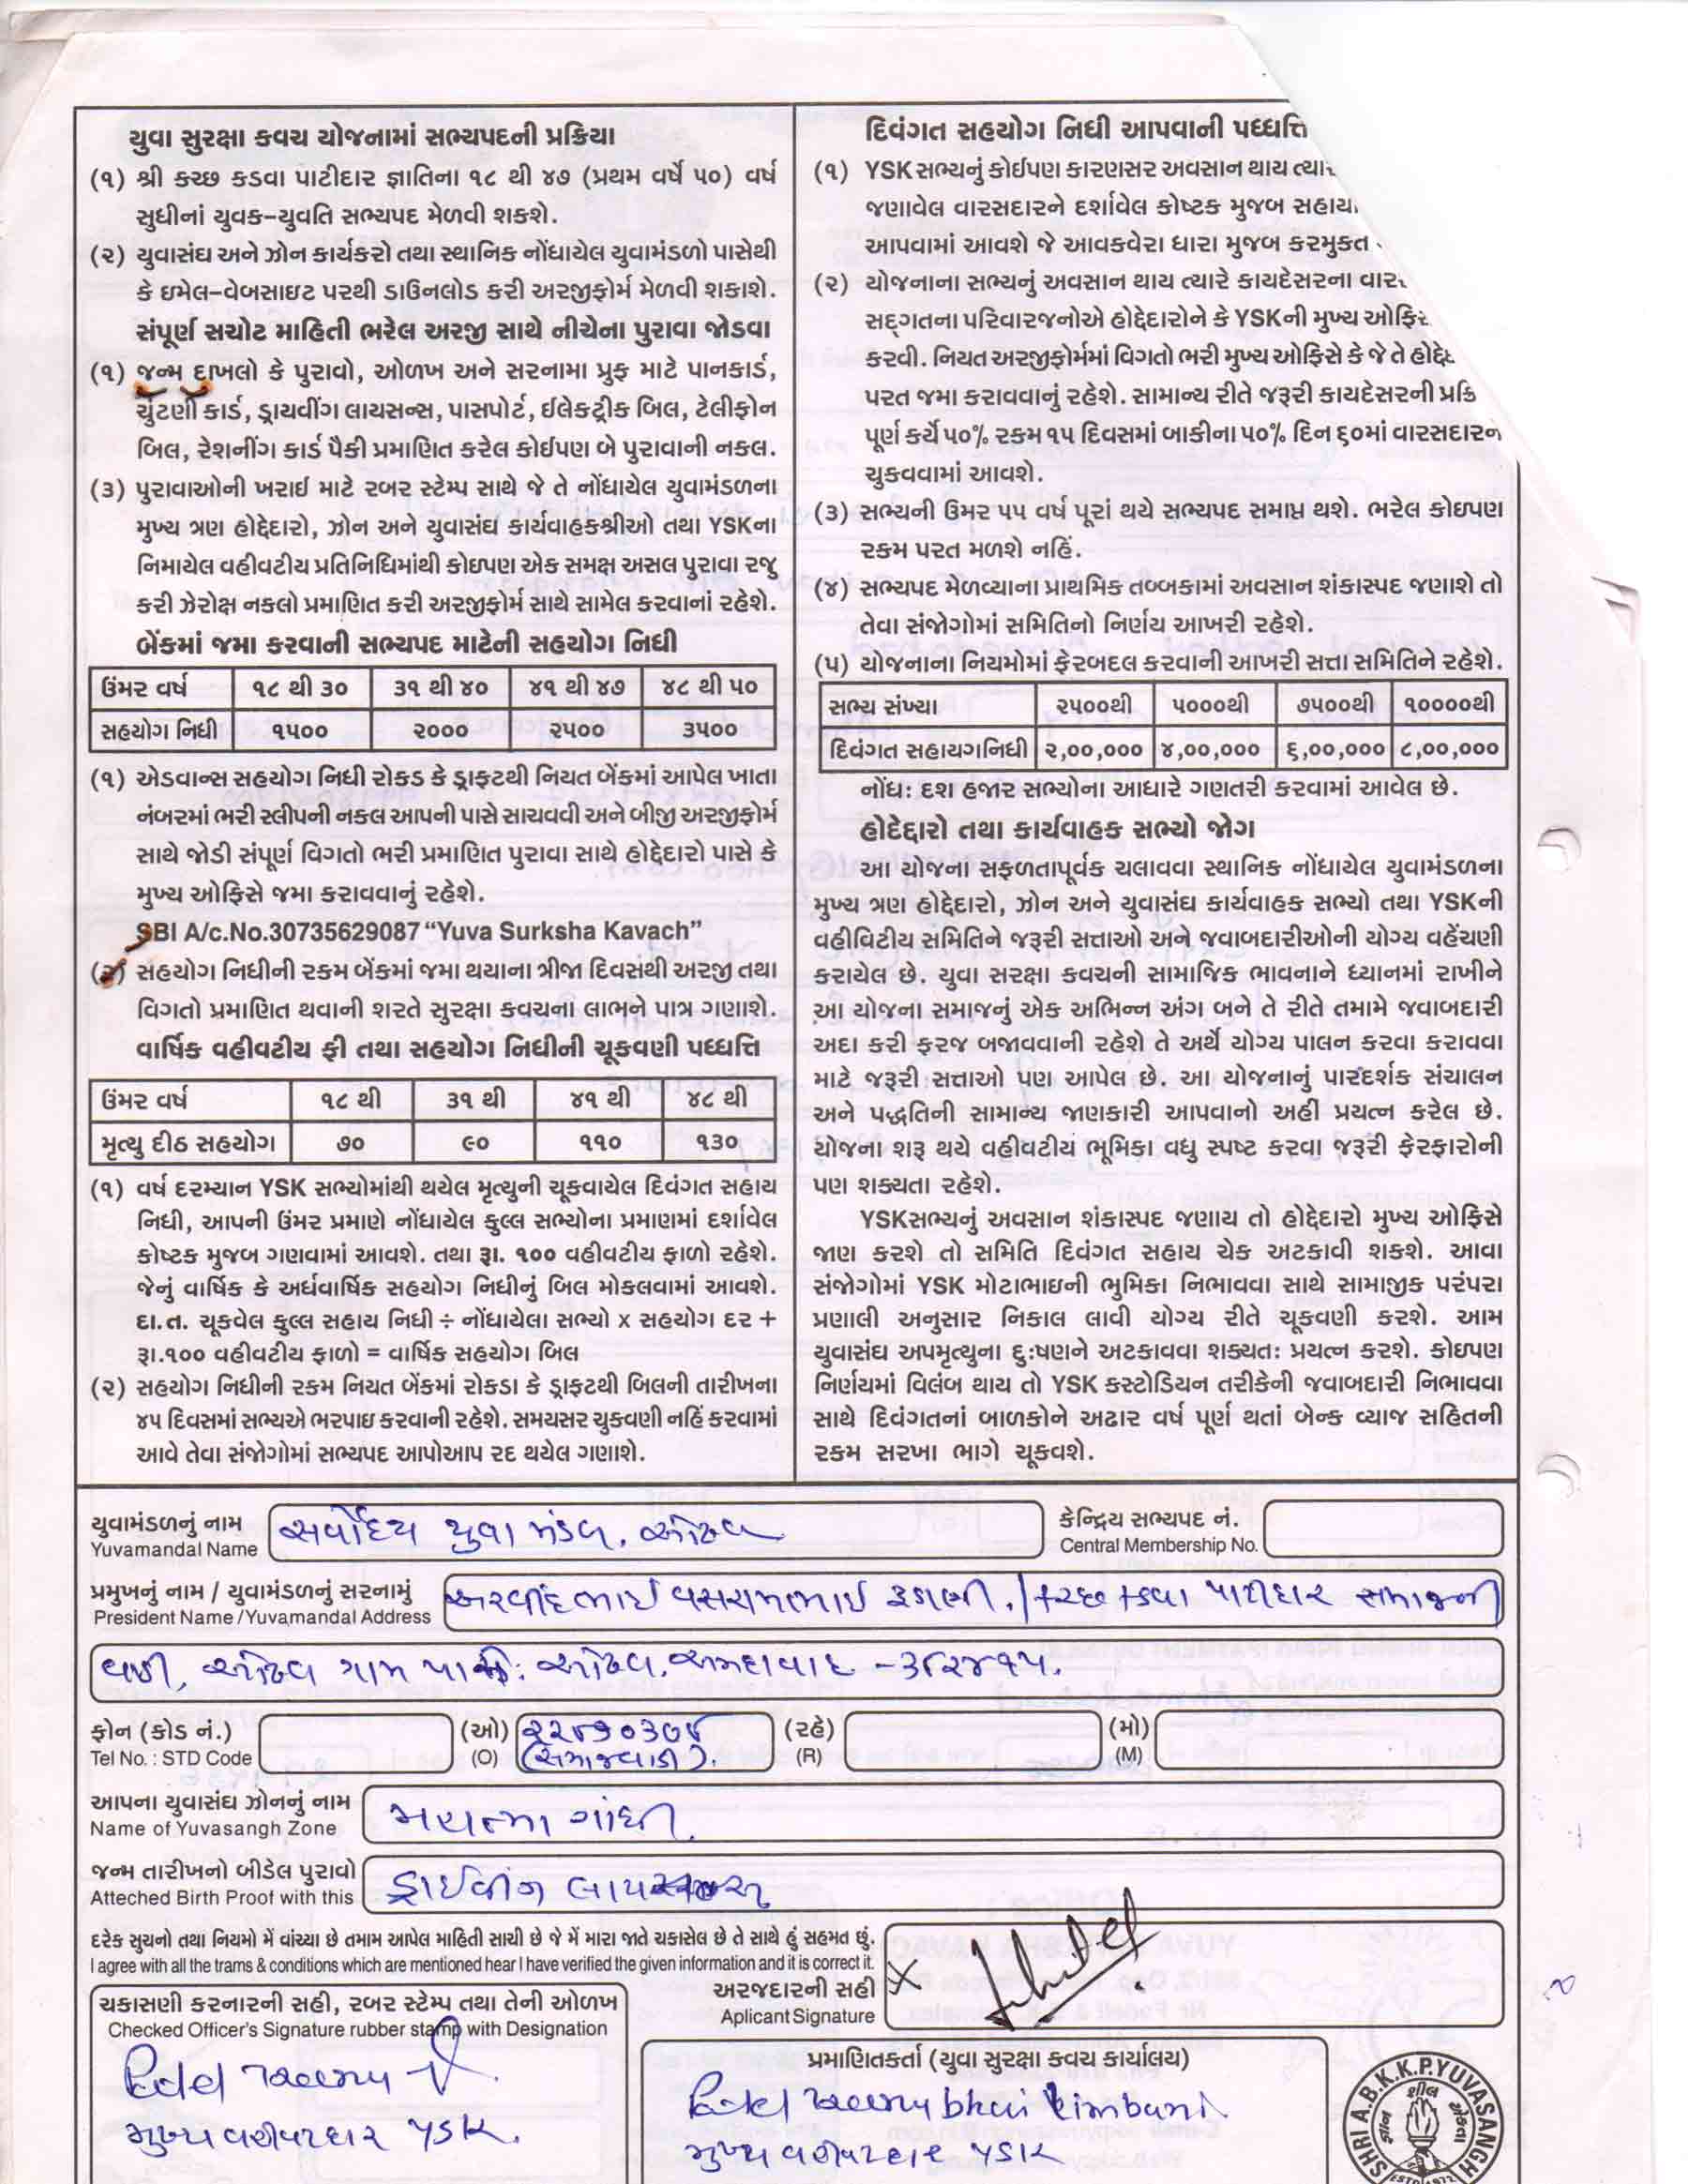 યુવા સુરક્ષા કવચ યોજનામાં સભ્યપદની પ્રક્રિયા
(૧) શ્રી કચ્છ કડવા પાટીદાર જ્ઞાતિના ૧૮ થી ૪૭ (પ્રથમ વર્ષે ૫૦) વર્ષ
સુધીનાં યુવક-યુવતિ સભ્યપદ મેળવી શકશે.
(૨) યુવાસંઘ અને ઝોન કાર્યકરો તથા સ્થાનિક નોંધાયેલ યુવામંડળો પાસેથી
કે ઇમેલ-વેબસાઇટ પરથી ડાઉનલોડ કરી અરજીફોર્મ મેળવી શકાશે.
સંપૂર્ણ સચોટ માહિતી ભરેલ અરજી સાથે નીચેના પુરાવા જોડવા
(૧) જન્મ દાખલો કે પુરાવો, ઓળખ અને સરનામા પ્રુફ માટે પાનકાર્ડ,
ચુંટણી કાર્ડ, ડ્રાયવીંગ લાયસન્સ, પાસપોર્ટ, ઈલેક્ટ્રીક બિલ, ટેલીફોન
બિલ, રેશનીંગ કાર્ડ પૈકી પ્રમાણિત કરેલ કોઈપણ બે પુરાવાની નકલ.
(૩) પુરાવાઓની ખરાઈ માટે રબર સ્ટેમ્પ સાથે જે તે નોંધાયેલ યુવામંડળના
મુખ્ય ત્રણ હોદ્દેદારો, ઝોન અને યુવાસંઘ કાર્યવાહકશ્રીઓ તથા YSKના
નિમાયેલ વહીવટીય પ્રતિનિધિમાંથી કોઇપણ એક સમક્ષ અસલ પુરાવા રજુ
કરી ઝેરોક્ષ નકલો પ્રમાણિત કરી અરજીફોર્મ સાથે સામેલ કરવાનાં રહેશે.
બેંકમાં જમા કરવાની સભ્યપદ માટેની સહયોગ નિધી
ઉંમર વર્ષ ૧૮ થી ૩૦ ૩૧ થી ૪૦ ૪૧ થી ૪૭ ૪૮ થી ૫૦
સહયોગ નિધી ૧૫૦૦ ૨૦૦૦ ૨૫૦૦ ૩૫૦૦
(૧) એડવાન્સ સહયોગ નિધી રોકડ કે ડ્રાફ્ટથી નિયત બેંકમાં આપેલ ખાતા
નંબરમાં ભરી સ્લીપની નકલ આપની પાસે સાચવવી અને બીજી અરજીફોર્મ
સાથે જોડી સંપૂર્ણ વિગતો ભરી પ્રમાણિત પુરાવા સાથે હોદ્દેદારો પાસે કે
મુખ્ય ઓફિસે જમા કરાવવાનું રહેશે.
SBI A/c.No.30735629087 “Yuva Surksha Kavach”
(૨) સહયોગ નિધીની રકમ બેંકમાં જમા થયાના ત્રીજા દિવસથી અરજી તથા
વિગતો પ્રમાણિત થવાની શરતે સુરક્ષા કવચના લાભને પાત્ર ગણાશે.
વાર્ષિક વહીવટીય ફી તથા સહયોગ નિધીની ચૂકવણી પધ્ધત્તિ
ઉંમર વર્ષ ૧૮ થી ૩૧ થી ૪૧ થી ૪૮ થી
મૃત્યુ દીઠ સહયોગ ૭૦ ૯૦ ૧૧૦ ૧૩૦
(૧) વર્ષ દરમ્યાન YSK સભ્યોમાંથી થયેલ મૃત્યુની ચૂકવાયેલ દિવંગત સહાય
નિધી, આપની ઉંમર પ્રમાણે નોંધાયેલ કુલ્લ સભ્યોના પ્રમાણમાં દર્શાવેલ
કોષ્ટક મુજબ ગણવામાં આવશે. તથા રૂા. ૧૦૦ વહીવટીય ફાળો રહેશે.
જેનું વાર્ષિક કે અર્ધવાર્ષિક સહયોગ નિધીનું બિલ મોકલવામાં આવશે.
દા.ત. ચૂકવેલ કુલ્લ સહાય નિધી ÷ નોંધાયેલા સભ્યો x સહયોગ દર +
રૂા.૧૦૦ વહીવટીય ફાળો = વાર્ષિક સહયોગ બિલ
(૨) સહયોગ નિધીની રકમ નિયત બેંકમાં રોકડા કે ડ્રાફ્ટથી બિલની તારીખના
૪૫ દિવસમાં સભ્યએ ભરપાઇ કરવાની રહેશે. સમયસર ચુકવણી નહિં કરવામાં
આવે તેવા સંજોગોમાં સભ્યપદ આપોઆપ રદ થયેલ ગણાશે.
દિવંગત સહયોગ નિધી આપવાની પધ્ધત્તિ
(૧) YSK સભ્યનું કોઈપણ કારણસર અવસાન થાય
જણાવેલ વારસદારને દર્શાવેલ કોષ્ટક મુજબ
આપવામાં આવશે જે આવકવેરા ધારા મુજબ કરમુક્ત
(૨) યોજનાના સભ્યનું અવસાન થાય ત્યારે કાયદેસરના
સદ્ગતના પરિવારજનોએ હોદ્દેદારોને કે YSKની મુખ્ય
કરવી. નિયત અરજીફોર્મમાં વિગતો ભરી મુખ્ય ઓફિસે કે જે તે
પરત જમા કરાવવાનું રહેશે. સામાન્ય રીતે જરૂરી કાયદેસરની
પૂર્ણ કર્યે ૫૦% રકમ ૧૫ દિવસમાં બાકીના ૫૦% દિન ૬૦માં
ચુકવવામાં આવશે.
(૩) સભ્યની ઉમર ૫૫ વર્ષ પૂરાં થયે સભ્યપદ સમાપ્ત થશે. ભરેલ કોઇપણ
રકમ પરત મળશે નહિં.
(૪) સભ્યપદ મેળવ્યાના પ્રાથમિક તબ્બકામાં અવસાન શંકાસ્પદ જણાશે તો
તેવા સંજોગોમાં સમિતિનો નિર્ણય આખરી રહેશે.
(૫) યોજનાના નિયમોમાં ફેરબદલ કરવાની આખરી સત્તા સમિતિને રહેશે.
સભ્ય સંખ્યા ૨૫૦૦થી ૫૦૦૦થી ૭૫૦૦થી ૧૦૦૦૦થી
દિવંગત સહાયગનિધી ૨,૦૦,૦૦૦ ૪,૦૦,૦૦૦ ૬,૦૦,૦૦૦ ૮,૦૦,૦૦૦
નોંધ: દશ હજાર સભ્યોના આધારે ગણતરી કરવામાં આવેલ છે.
હોદેદ્દારો તથા કાર્યવાહક સભ્યો જોગ
આ યોજના સફળતાપૂર્વક ચલાવવા સ્થાનિક નોંધાયેલ યુવામંડળના
મુખ્ય ત્રણ હોદ્દેદારો, ઝોન અને યુવાસંઘ કાર્યવાહક સભ્યો તથા YSKની
વહીવિટીય સમિતિને જરૂરી સત્તાઓ અને જવાબદારીઓની યોગ્ય વહેંચણી
કરાયેલ છે. યુવા સરક્ષા કવચની સામાજિક ભાવનાને ધ્યાનમાં રાખીને
આ યોજના સમાજનું એક અભિન્ન અંગ બને તે રીતે તમામે જવાબદારી
અદા કરી ફરજ બજાવવાની રહેશે તે અર્થે યોગ્ય પાલન કરવા કરાવવા
માટે જરૂરી સત્તાઓ પણ આપેલ છે. આ યોજનાનું પારદર્શક સંચાલન
અને પદ્ધતિની સામાન્ય જાણકારી આપવાનો અહી પ્રયત્ન કરેલ છે.
યોજના શરૂ થયે વહીવટીય ભૂમિકા વધુ સ્પષ્ટ કરવા જરૂરી ફેરફારોની
પણ શક્યતા રહેશે.
YSKસભ્યનું અવસાન શંકાસ્પદ જણાય તો હોદ્દેદારો મુખ્ય ઓફિસે
જાણ કરશે તો સમિતિ દિવંગત સહાય ચેક અટકાવી શકશે. આવા
સંજોગોમાં YSK મોટાભાઇની ભુમિકા નિભાવવા સાથે સામાજીક પરંપરા
પ્રણાલી અનુસાર નિકાલ લાવી યોગ્ય રીતે ચૂકવણી કરશે. આમ
યુવાસંઘ અપમૃત્યુના દુઃષણને અટકાવવા શક્યતઃ પ્રયત્ન કરશે. કોઇપણ
નિર્ણયમાં વિલંબ થાય તો YSK કસ્ટોડિયન તરીકેની જવાબદારી નિભાવવા
સાથે દિવંગતનાં બાળકોને અઢાર વર્ષ પૂર્ણ થતાં બેન્ક વ્યાજ સહિતની
રકમ સરખા ભાગે ચૂકવશે.
યુવામંડળનું નામ સર્વોદય યુવા મંડળ, ઓઢવ કેન્દ્રિય સભ્યપદ નં.
Yuvamandal Name Central Membership No.
પ્રમુખનું નામ / યુવામંડળનું સરનામું અરવીંદભાઈ વસરામભાઈ રૂડાણી. / કચ્છ કડવા પાટીદાર સમાજની
President Name /Yuvamandal Address
વાડી, ઓઢવ ગામ પાસે: ઓઢવ, અમદાવાદ -૩૮૨૪૧૫.
ફોન (કોડ નં.) (ઓ) (રહે) (મો)
Tel No. : STD Code (O) (સમાજવાડી). (R) (M)
આપના યુવાસંઘ ઝોનનું નામ મહાત્મા ગાંધી.
Name of Yuvasangh Zone
જન્મ તારીખનો બીડેલ પુરાવો ડ્રાઈવીંગ
Atteched Birth Proof with this
દરેક સુચનો તથા નિયમો મેં વાંચ્યા છે તમામ આપેલ માહિતી સાચી છે જે મેં મારા જાતે ચકાસેલ છે તે સાથે હું સહમત છું.
I agree with all the trams & conditions which are mentioned hear I have verified the given information and it is correct it.
અરજદારની સહી
Aplicant Signature
ચકાસણી કરનારની સહી, રબર સ્ટેમ્પ તથા તેની ઓળખ
Checked Officer's Signature rubber stamp with Designation
મુખ્ય વહીવટદાર YSK.
પ્રમાણિતકર્તા (યુવા સુરક્ષા કવચ કાર્યાલય)
મુખ્ય વહીવટદાર YSK
SHRI A.B.K.K.P.YUVASANGH